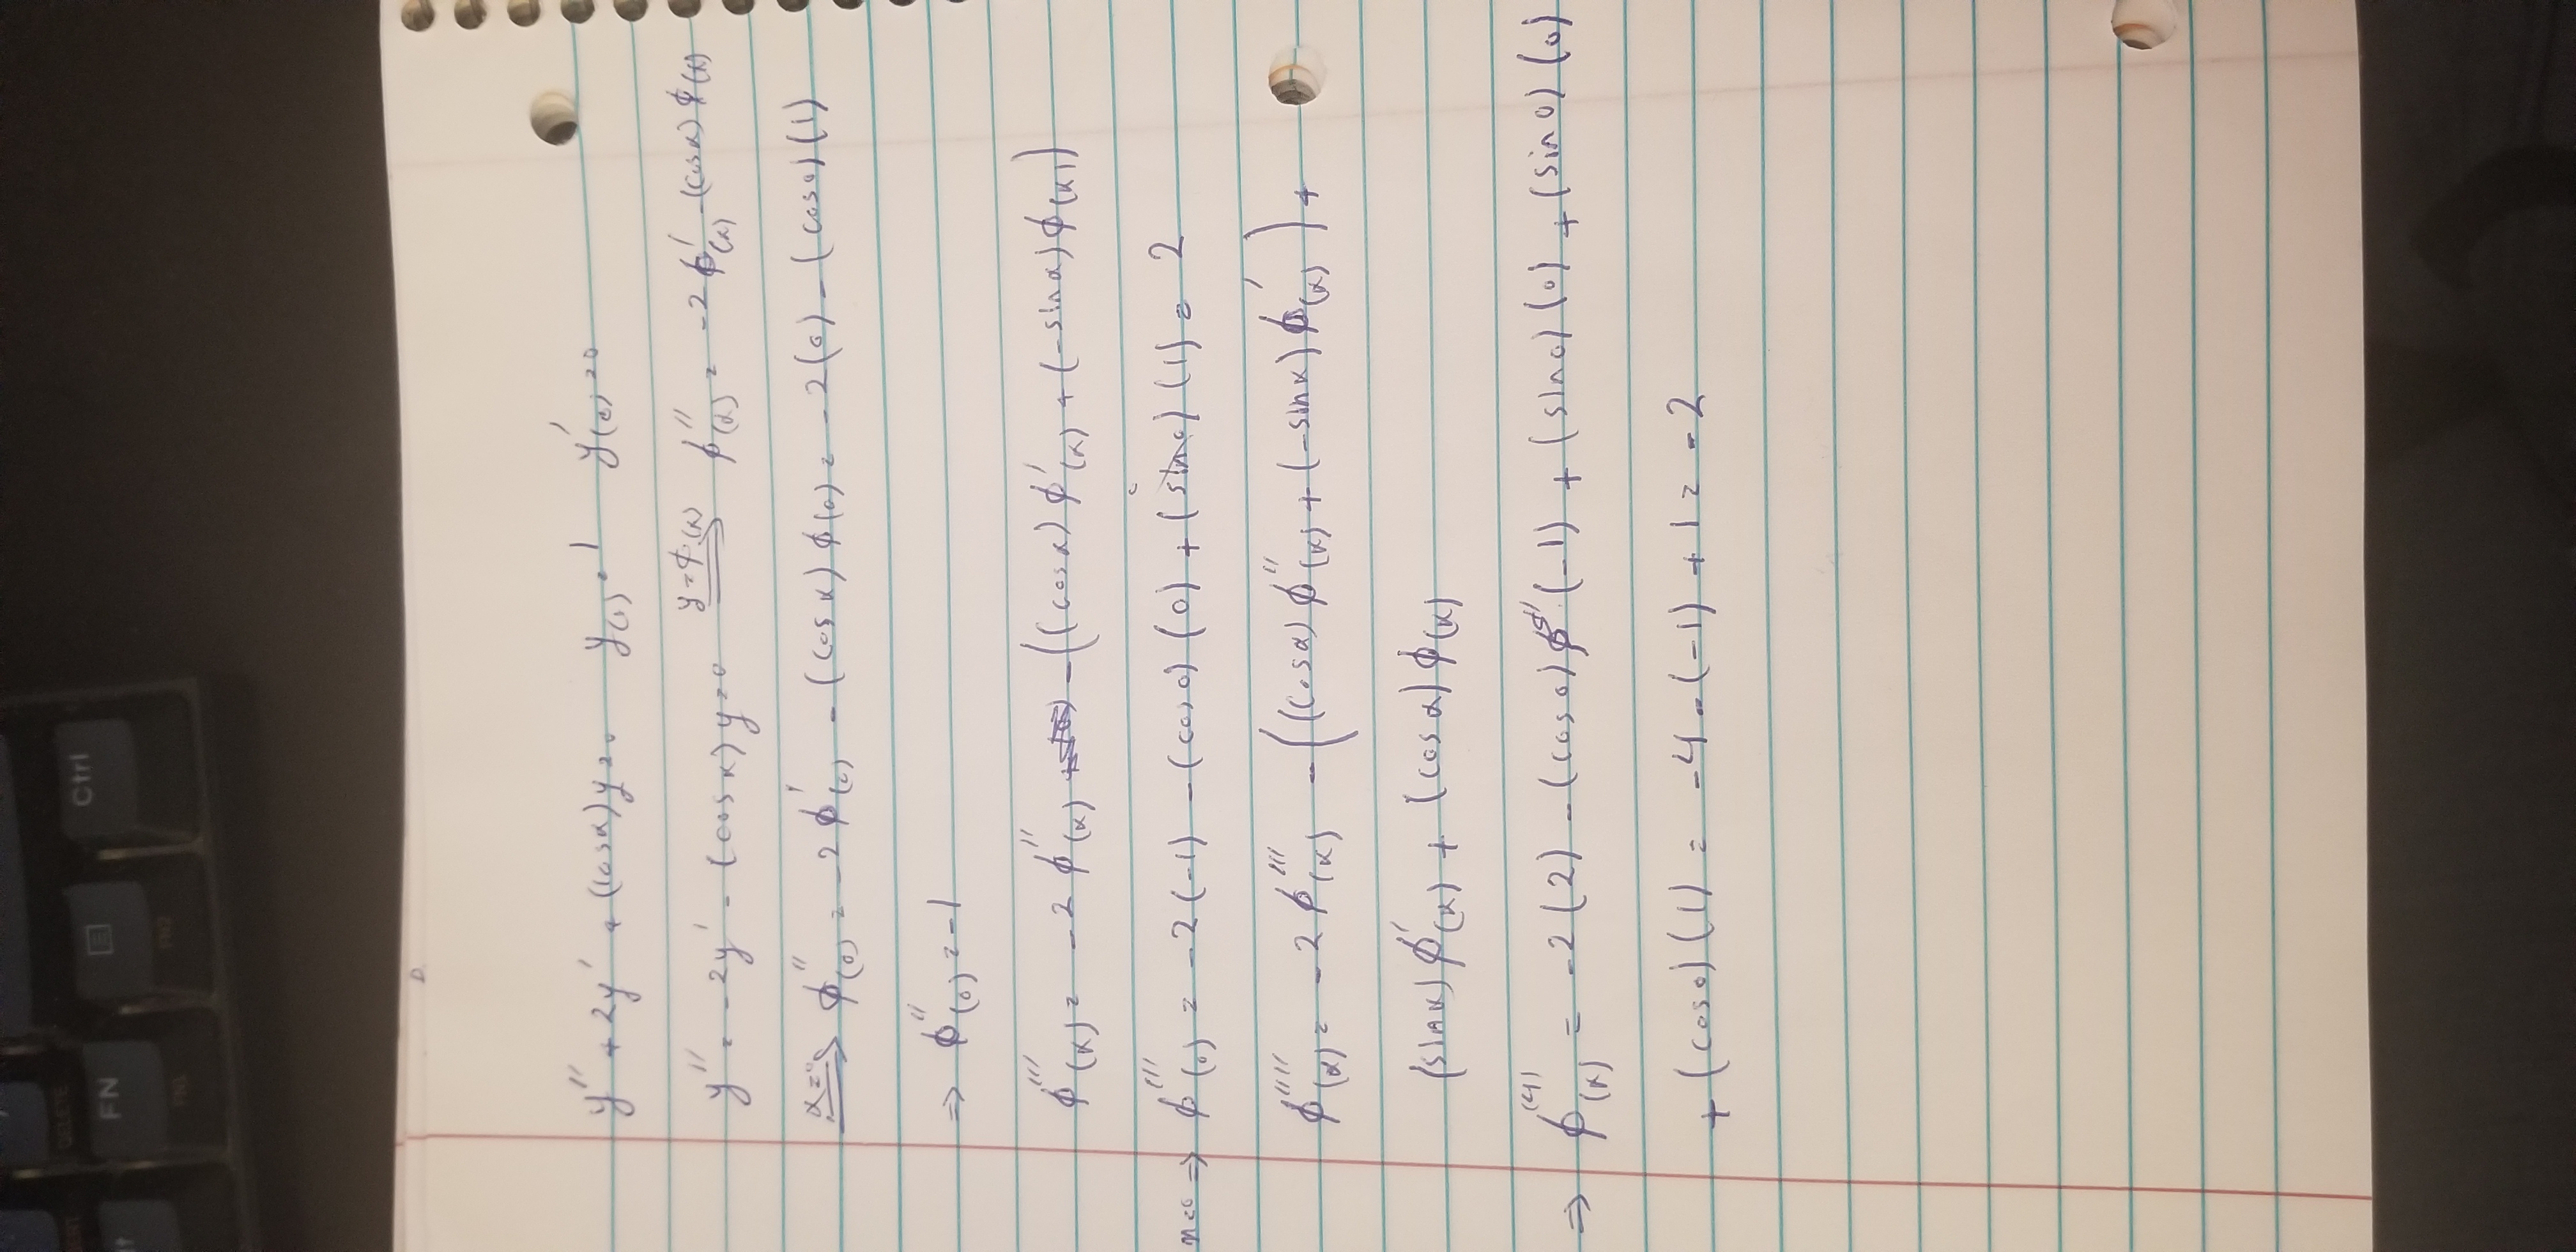 DELETE
FN
Ctrl
FN1
FN2
D
y'' + 2y' + (cosx)y = 0 y(0) = 1 y'(0) = 0
y'' = -2y' - (cosx)y = 0 y=ϕ(x) ⟹ ϕ''(x) = -2ϕ'(x) - (cosx)ϕ(x)
x=0 ⟹ ϕ''(0) = -2ϕ'(0) - (cosx)ϕ(0) = -2(0) - (cos0)(1)
⇒ ϕ''(0) = -1
ϕ'''(x) = -2ϕ''(x) - ((cosx)ϕ'(x) + (-sinx)ϕ(x))
x=0 ⇒ ϕ'''(0) = -2(-1) - (cos0)(0) + (sin0)(1) = 2
ϕ''''(x) = -2ϕ'''(x) - ((cosx)ϕ''(x) + (-sinx)ϕ'(x)) +
(sinx)ϕ'(x) + (cosx)ϕ(x)
⇒ ϕ⁽⁴⁾(x) = -2(2) - (cos0)(-1) + (sin0)(0) + (sin0)(0)
+ (cos0)(1) = -4 - (-1) + 1 = -2